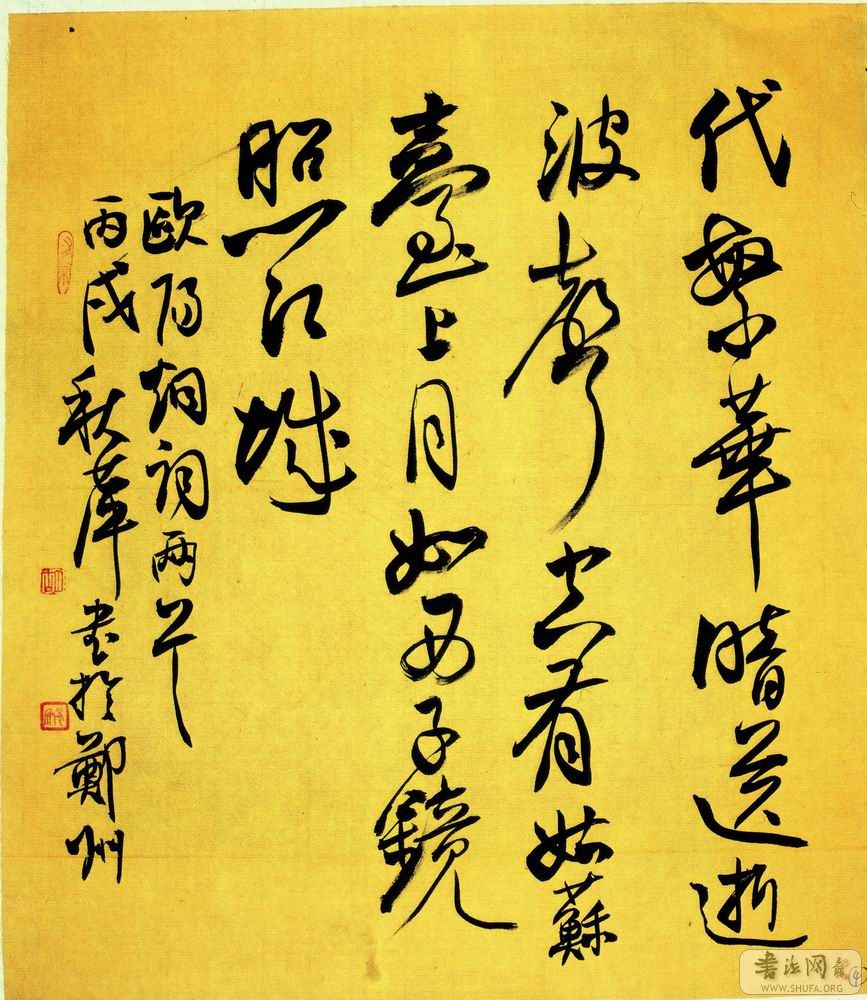 代繁華暗逐逝
波聲空有姑蘇
臺上月如西子鏡
照江城
歐陽炯詞兩首
丙戌秋書於鄭州
書法网
WWW.SHUFA.ORG